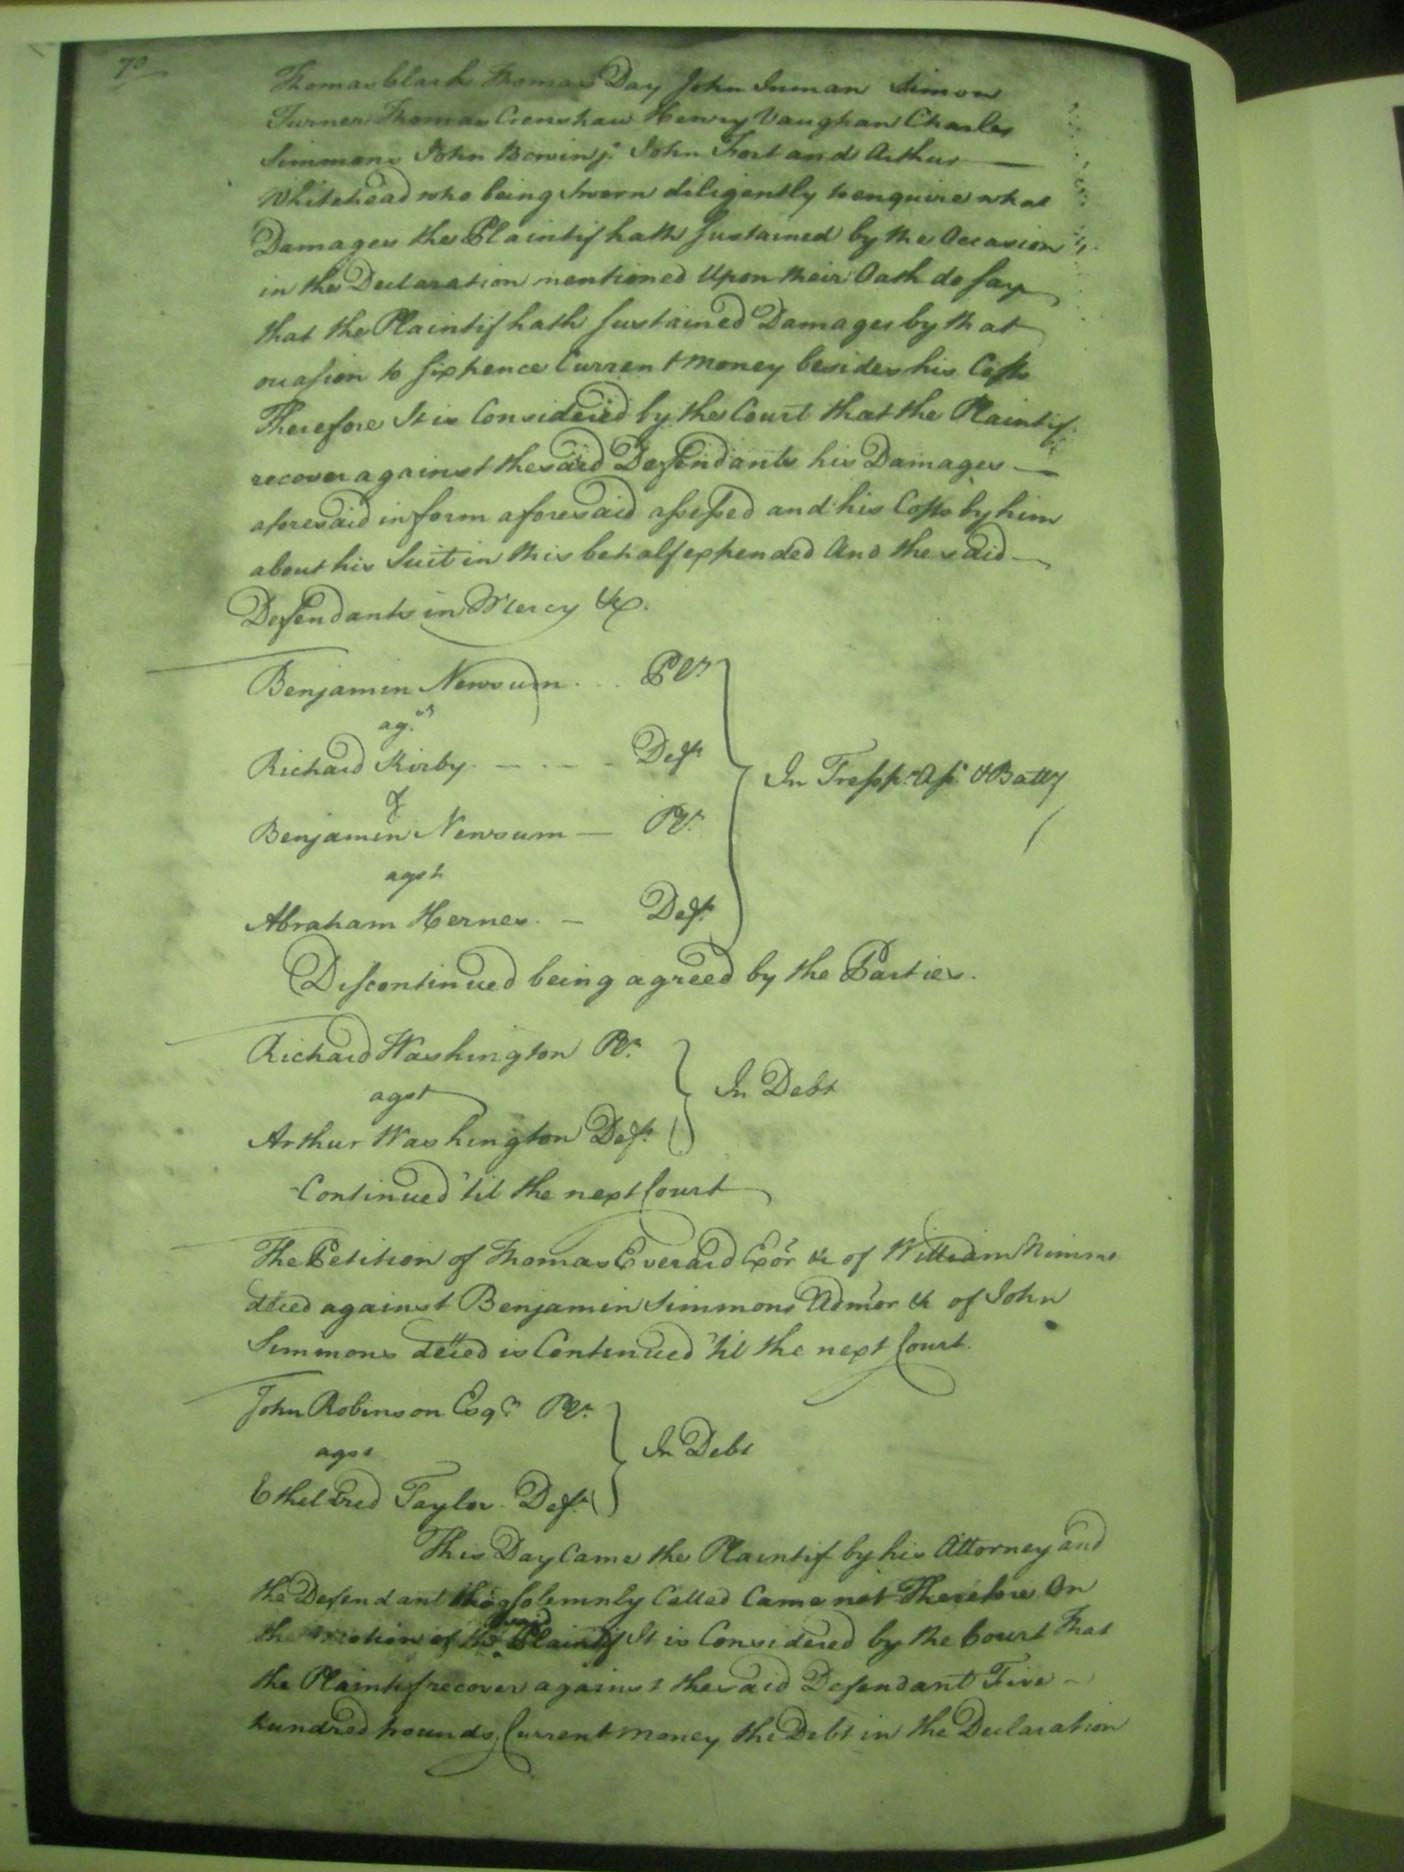 70
Thomas Clark Thomas Day John Inman Simon
Turner Thomas Crenshaw Henry Vaughan Charles
Simmons John Bowin jr. John Fort and Arthur
Whitehead who being Sworn diligently to enquire what
Damages the Plaintif hath Sustained by the Occasion
in the Declaration mentioned Upon their Oath do say
that the Plaintif hath Sustained Damages by that
occasion to Sixpence Current money besides his Costs
Therefore It is Considered by the Court that the Plaintif
recover against the said Defendants his Damages
aforesaid in form aforesaid assessed and his Costs by him
about his Suit in this behalf expended And the said
Defendants in Mercy &c.
Benjamin Newsum Plt.
agst
Richard Kirby Deft
&
Benjamin Newsum Plt.
agst
Abraham Hernes Deft.
In Tressps. Asst. & Batty
Discontinued being agreed by the Parties.
Richard Washington Plt.
agst
Arthur Washington Deft.
In Debt
Continued 'til the next Court
The Petition of Thomas Everard Exor &c of William Nimmo
deced against Benjamin Simmons Admor &c of John
Simmons deced is Continued 'til the next Court.
John Robinson Esqr. Plt.
agst
Etheldred Taylor Deft.
In Debt
This Day Came the Plaintif by his Attorney and
the Defendant tho' Solemnly Called Came not Therefore On
the motion of the said Plaintif It is Considered by the Court That
the Plaintif recover against the said Defendant Five
hundred pounds Current money the Debt in the Declaration